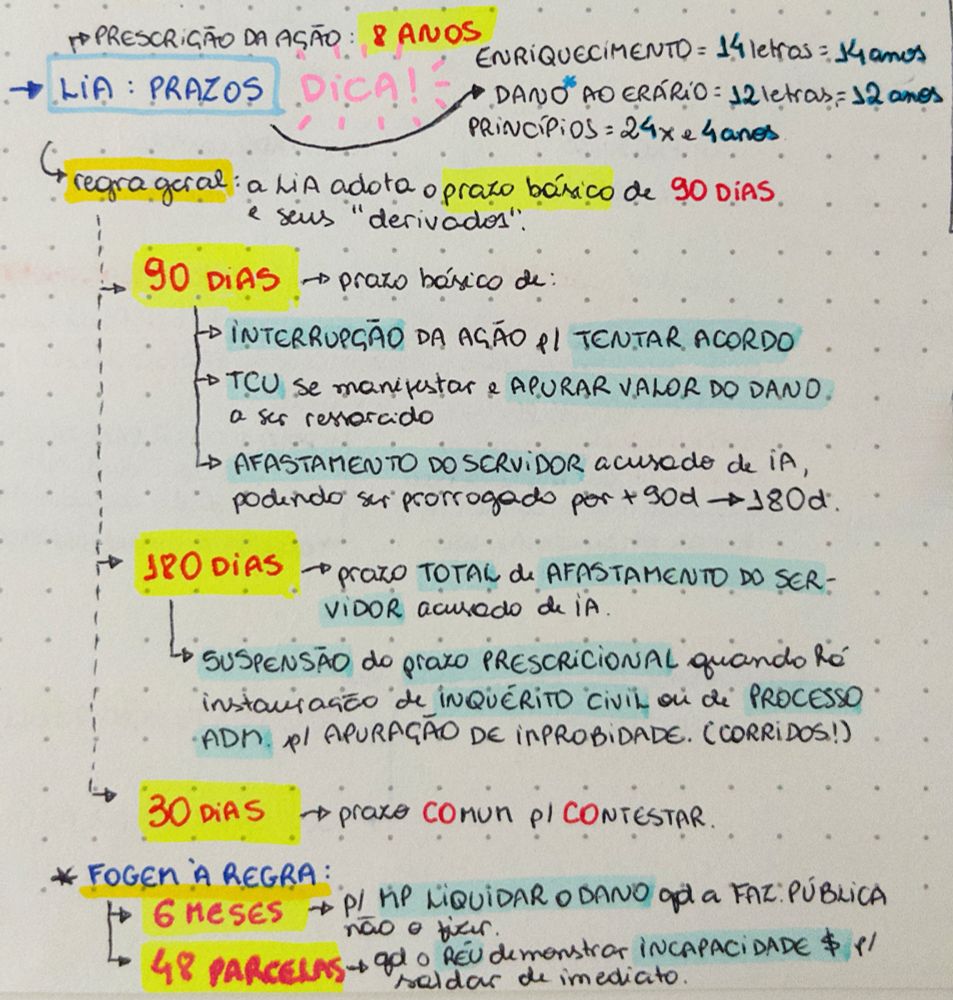 ↦ PRESCRIÇÃO DA AÇÃO: 8 ANOS
→ LIA: PRAZOS DICA!
ENRIQUECIMENTO = 14 letras = 14 anos
→ DANO* AO ERÁRIO = 12 letras = 12 anos
PRINCÍPIOS = 24x e 4 anos
regra geral: a LIA adota o prazo básico de 90 DIAS
e seus "derivados".
90 DIAS → prazo básico de:
→ INTERRUPÇÃO DA AÇÃO p/ TENTAR ACORDO
→ TCU se manifestar e APURAR VALOR DO DANO
a ser ressarcido
→ AFASTAMENTO DO SERVIDOR acusado de IA,
podendo ser prorrogado por + 90d → 180d.
180 DIAS → prazo TOTAL de AFASTAMENTO DO SER-
VIDOR acusado de IA.
→ SUSPENSÃO do prazo PRESCRICIONAL quando há
instauração de INQUÉRITO CIVIL ou de PROCESSO
ADM. p/ APURAÇÃO DE INPROBIDADE. (CORRIDOS!)
30 DIAS → prazo COMUM p/ CONTESTAR.
* FOGEM À REGRA:
6 MESES → p/ MP LIQUIDAR O DANO qd a FAZ. PÚBLICA
não o fizer.
48 PARCELAS → qd o RÉU demonstrar INCAPACIDADE $ p/
saldar de imediato.